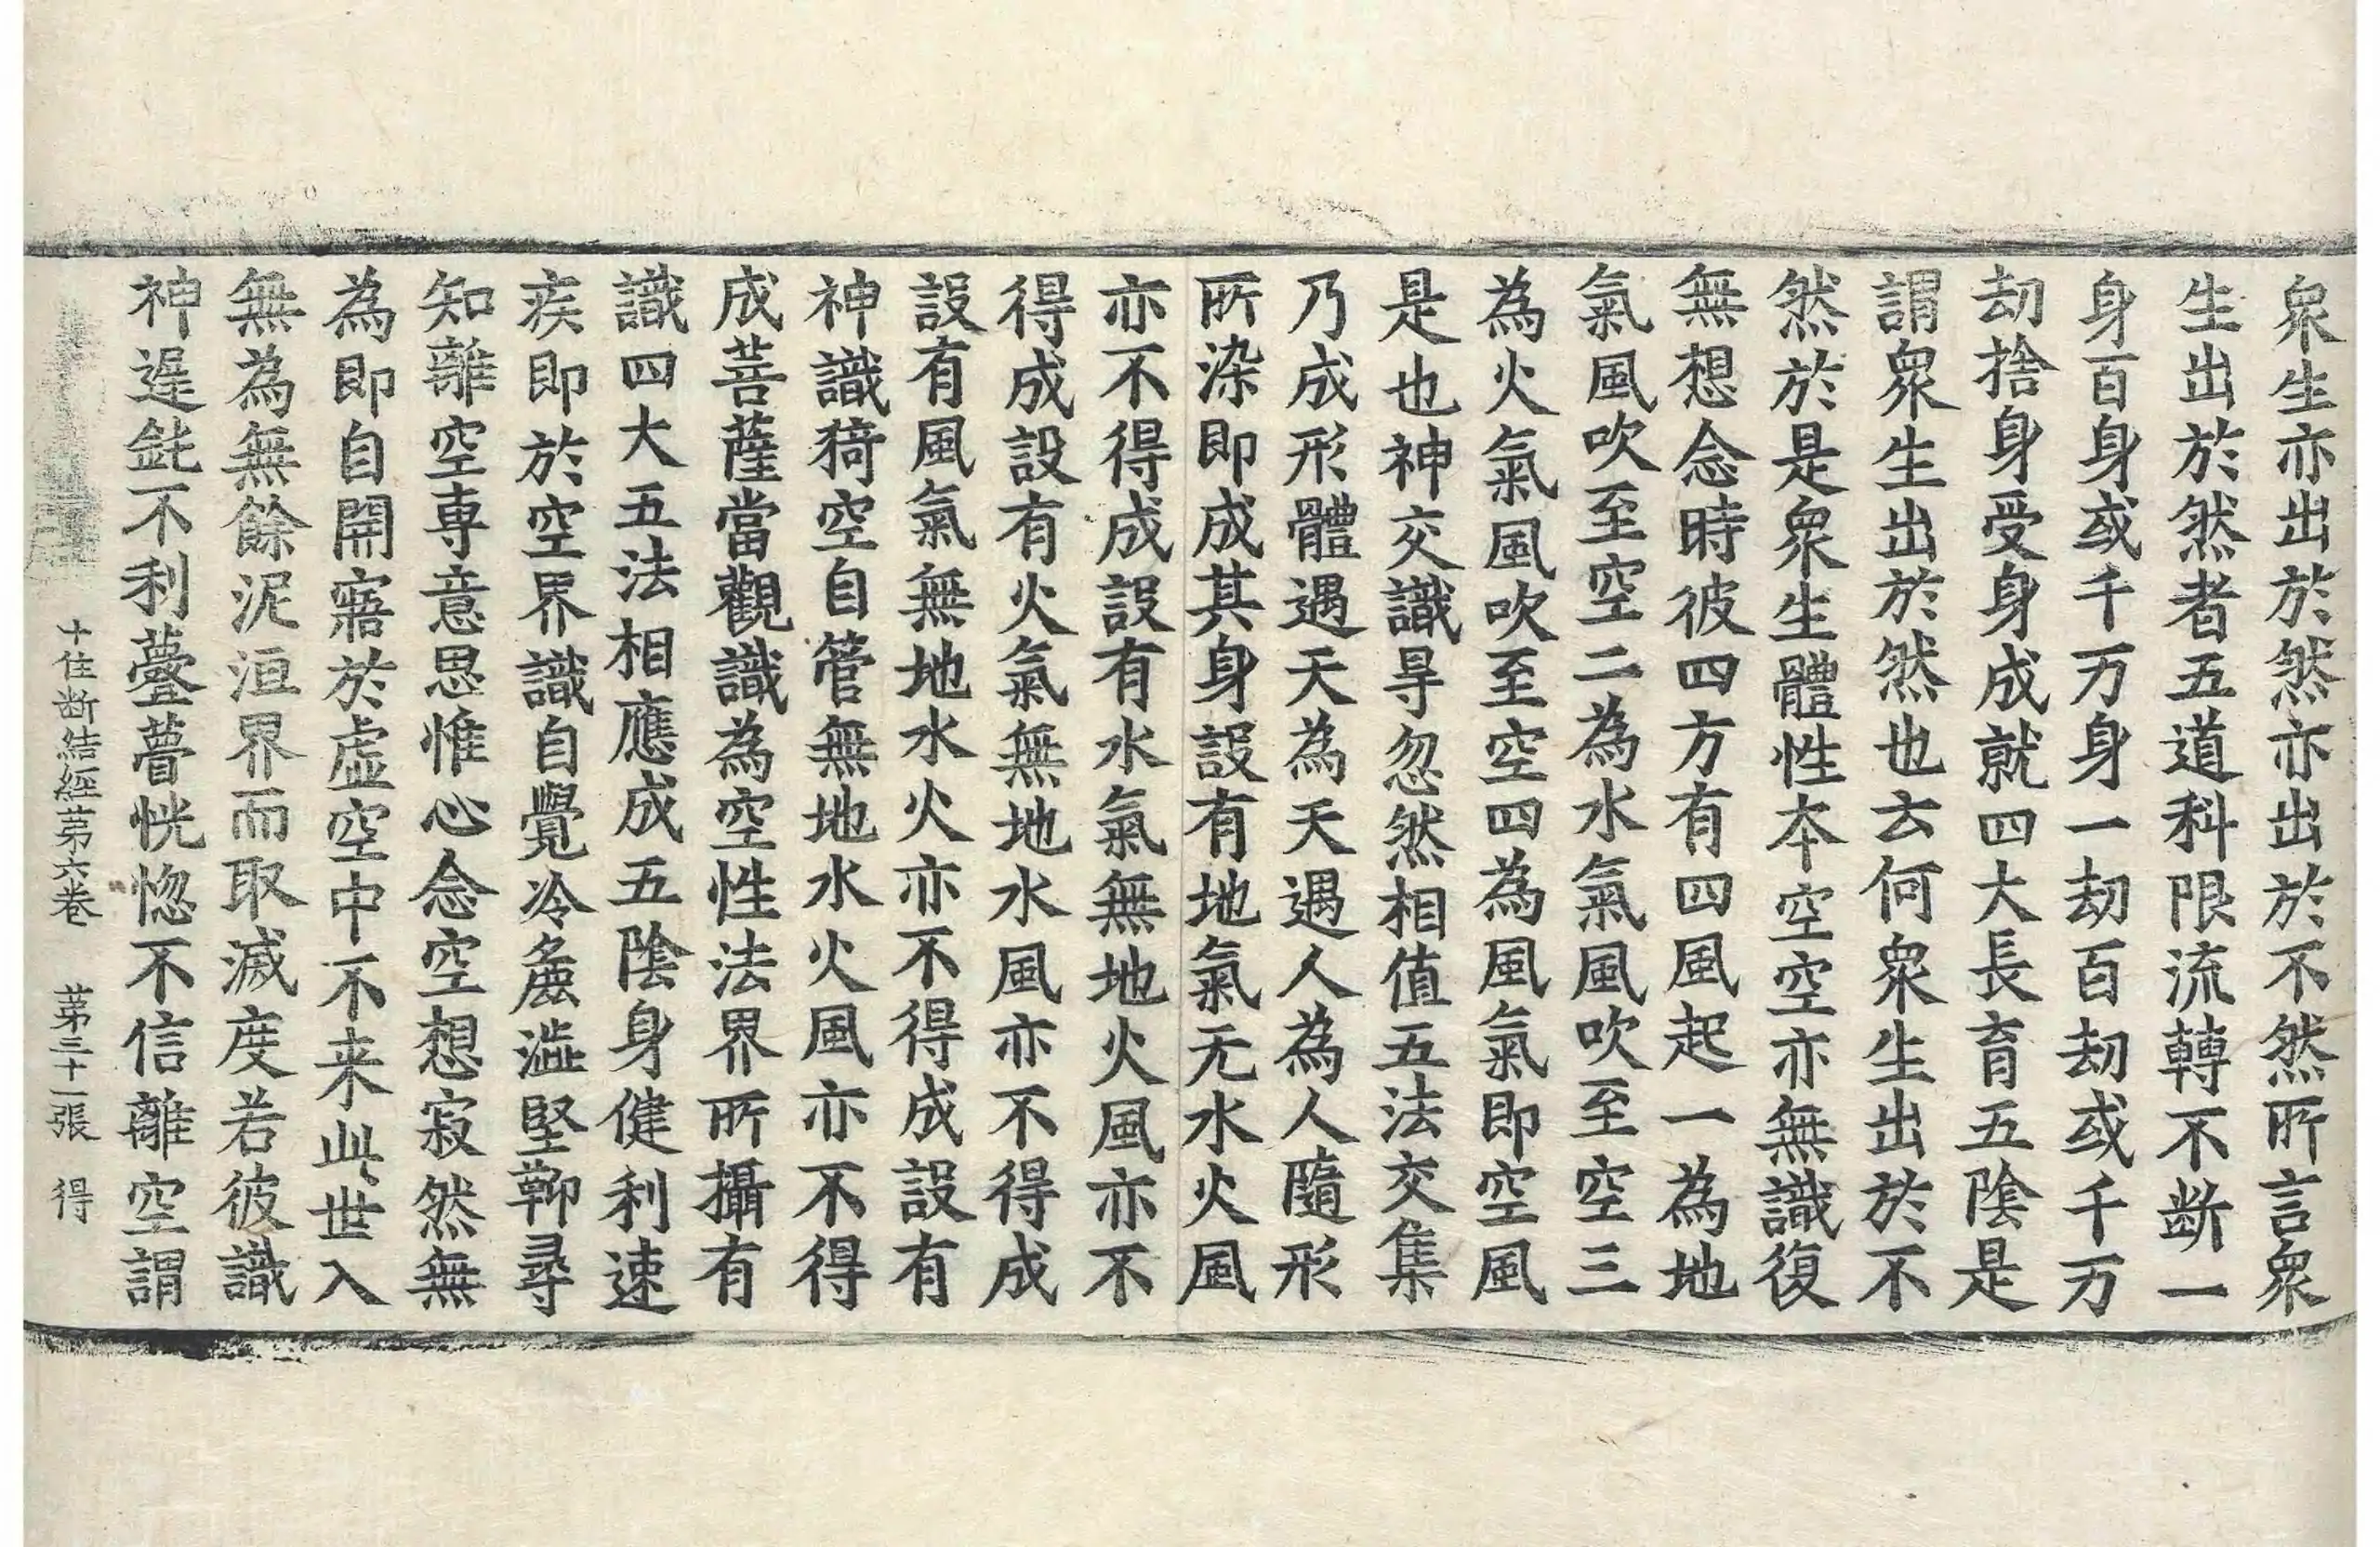 衆生亦出於然亦出於不然所言衆
生出於然者五道科限流轉不断一
身百身或千万身一劫百劫或千万
劫捨身受身成就四大長育五陰是
謂衆生出於然也云何衆生出於不
然於是衆生體性本空空亦無識復
無想念時彼四方有四風起一為地
氣風吹至空二為水氣風吹至空三
為火氣風吹至空四為風氣即空風
是也神交識㝵忽然相值五法交集
乃成形體遇天為天遇人為人隨形
所染即成其身設有地氣无水火風
亦不得成設有水氣無地火風亦不
得成設有火氣無地水風亦不得成
設有風氣無地水火亦不得成設有
神識猗空自管無地水火風亦不得
成菩薩當觀識為空性法界所攝有
識四大五法相應成五陰身健利速
疾即於空界識自覺冷麁澁堅鞕尋
知離空専意思惟心念空想寂然無
為即自開寤於虛空中不来此世入
無為無餘泥洹界而取滅度若彼識
神遲鈍不利薹瞢恍惚不信離空謂
十住断結經苐六卷 苐三十一張 得